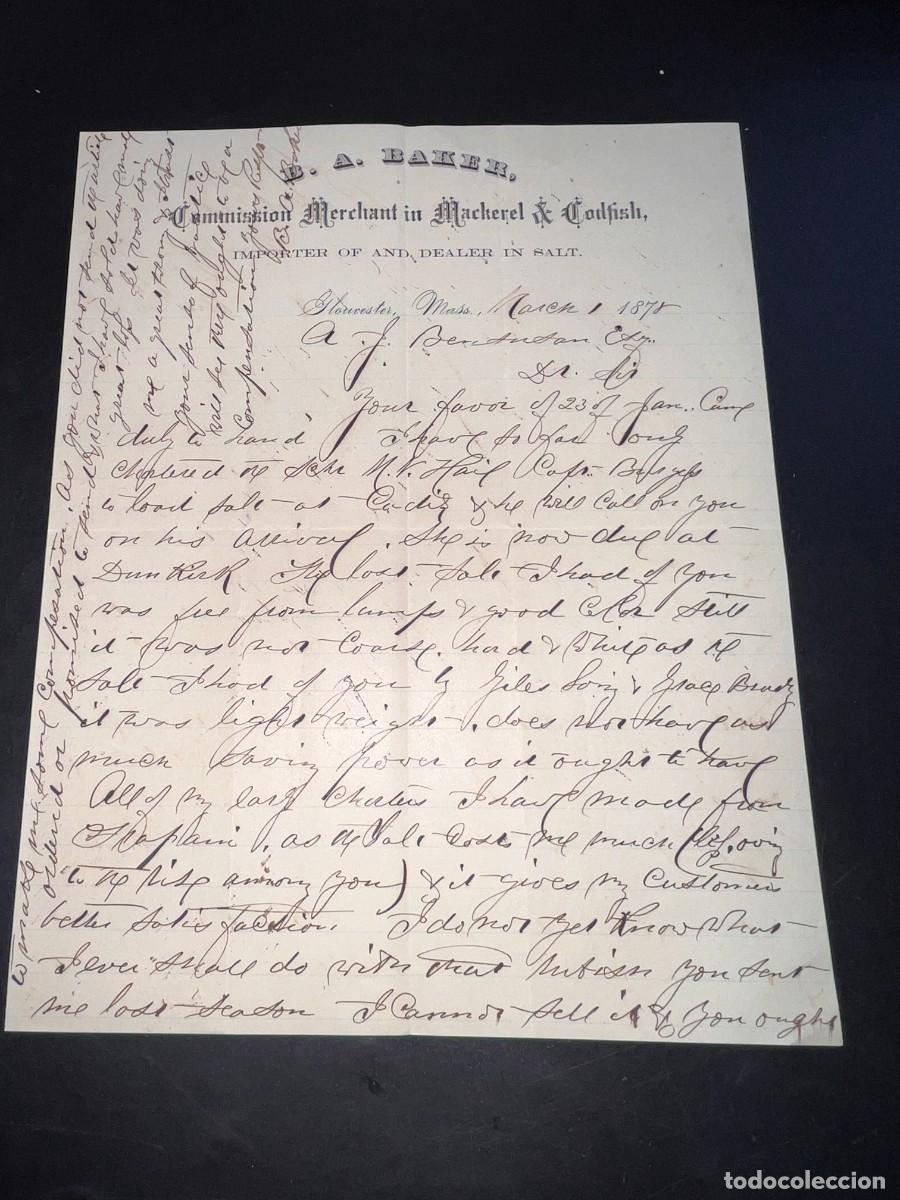 B. A. BAKER,
Commission Merchant in Mackerel & Codfish,
IMPORTER OF AND DEALER IN SALT.
Gloucester, Mass., March 1 1878
A. J. Bensusan Esq.
Dr. Sir
Your favor of 23 of Jan. Came
duly to hand, I have so far only
Chartered the Schr Capt.
to load salt at Cadiz & he will Call on you
on his arrival. She is now due at
Dunkirk. The last Salt I had of you
was free from lumps & good Color still
it was not Coarse, hard & White as the
Salt I had of you by Giles Loring & Grace Bradley
it was light weight, does not have as
much Saving power as it ought to have
All of my large Charters I have made from
Trapani, as the Salt cost me much less, owing
to the among you) & it gives my Customers
better Satisfaction. I do not yet know what
I ever shall do with that you sent
me last season I Cannot sell it & you ought
to make me some Compensation. As you did not send quality
orderd or promised to kindly
what I have sold have
great he was doing
me a great wrong &
your sense of justice
will say they ought to be a
Compensation Yours Resp
B. A. Baker
todocoleccion